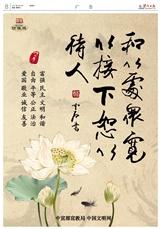 8
广告
和以处众 宽
以接下 恕以
待人
富强 民主 文明 和谐
自由 平等 公正 法治
爱国 敬业 诚信 友善
中宣部宣教局 中国文明网